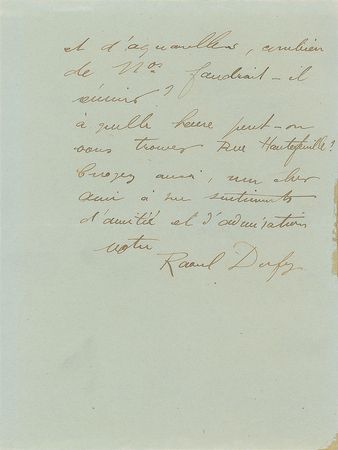 et d'aquarelles, combien
de Nos faudrait-il
réunir ?
à quelle heure peut-on
vous trouver Rue Hautefeuille ?
Croyez aussi, mon cher
ami à me sentiments
d'amitié et d'admiration
votre
Raoul Dufy